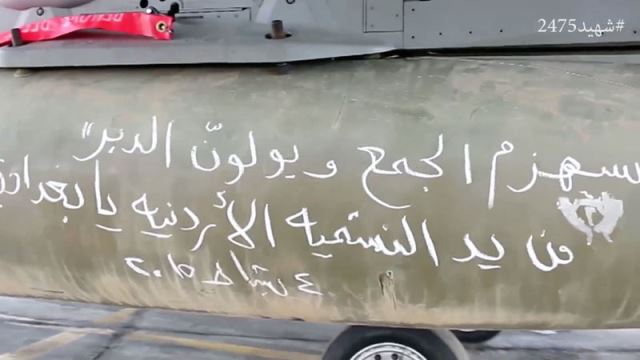 #شهيد2475
سيهزم الجمع ويولونّ الدبر"
من يد النشميه الأردنيه يا بغدادي
٤ شباط ٢٠١٥